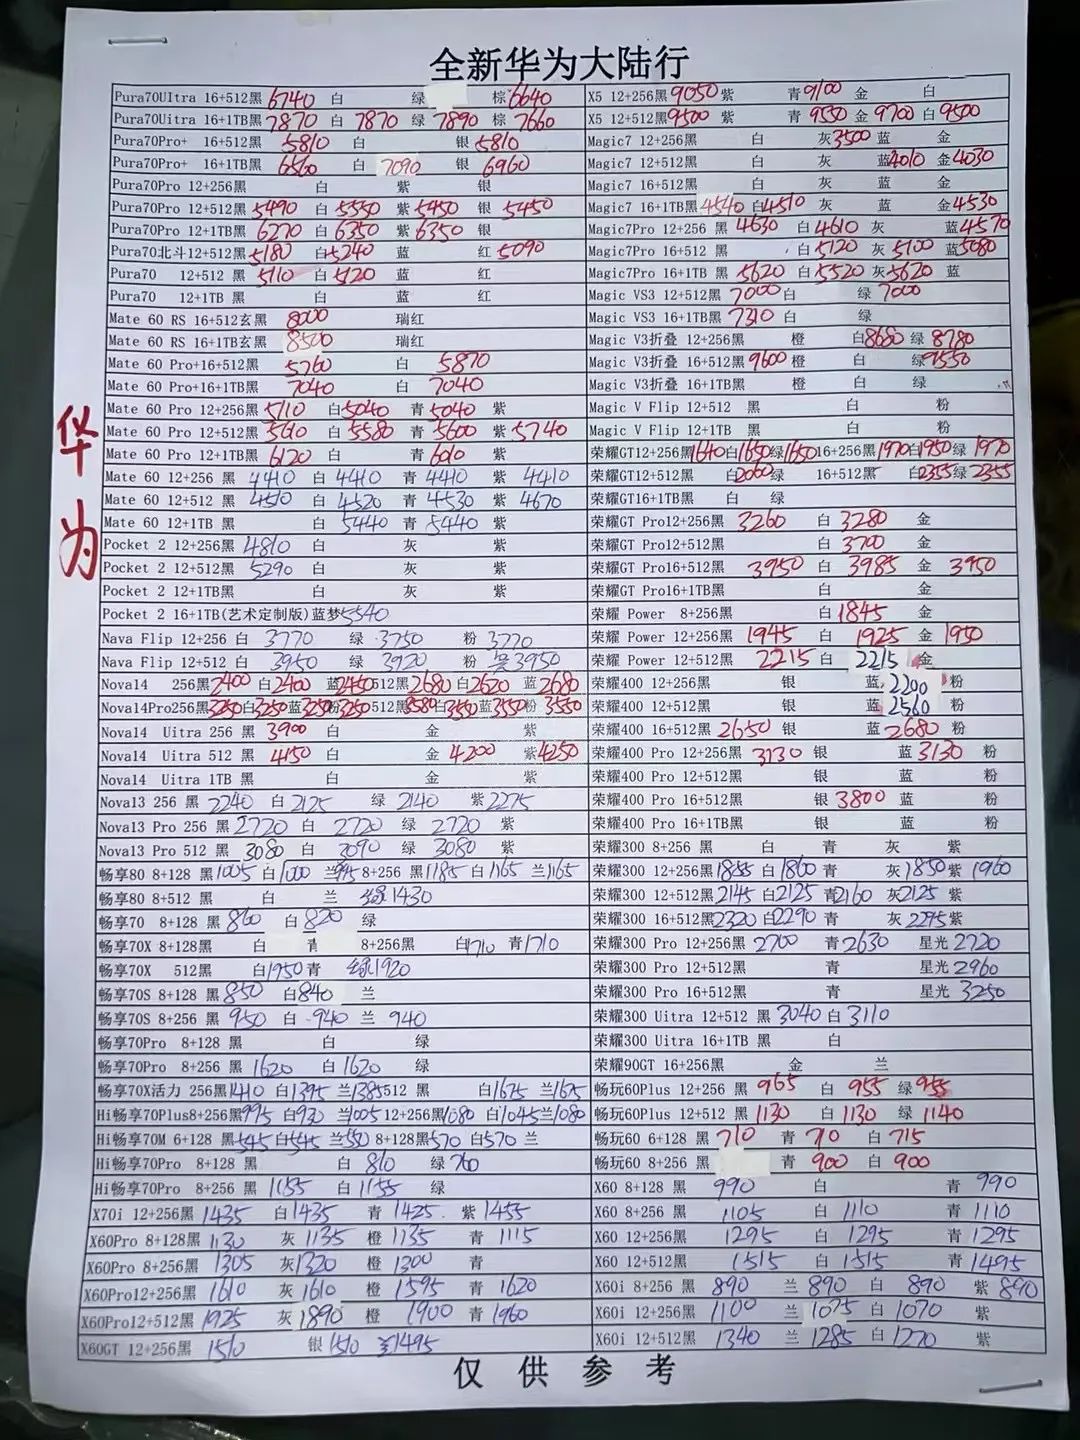 全新华为大陆行
华为
Pura70UItra 16+512黑 6740 白 绿 棕 6640
Pura70Uitra 16+1TB黑 7870 白 7870 绿 7890 棕 7660
Pura70Pro+ 16+512黑 5810 白 银 5810
Pura70Pro+ 16+1TB黑 6560 白 7090 银 6960
Pura70Pro 12+256黑 白 紫 银
Pura70Pro 12+512黑 5490 白 5550 紫 5450 银 5450
Pura70Pro 12+1TB黑 6270 白 6350 紫 6350 银
Pura70北斗12+512黑 5180 白 5240 蓝 红 5090
Pura70 12+512 黑 5110 白 5120 蓝 红
Pura70 12+1TB 黑 白 蓝 红
Mate 60 RS 16+512玄黑 8000 瑞红
Mate 60 RS 16+1TB玄黑 8500 瑞红
Mate 60 Pro+16+512黑 5760 白 5870
Mate 60 Pro+16+1TB黑 7040 白 7040
Mate 60 Pro 12+256黑 5110 白 5040 青 5040 紫
Mate 60 Pro 12+512黑 5610 白 5580 青 5600 紫 5740
Mate 60 Pro 12+1TB黑 6120 白 青 6010 紫
Mate 60 12+256 黑 4410 白 4410 青 4410 紫 4410
Mate 60 12+512 黑 4510 白 4520 青 4530 紫 4670
Mate 60 12+1TB 黑 白 5440 青 5440 紫
Pocket 2 12+256黑 4810 白 灰 紫
Pocket 2 12+512黑 5290 白 灰 紫
Pocket 2 12+1TB黑 白 灰 紫
Pocket 2 16+1TB(艺术定制版)蓝梦 5540
Nava Flip 12+256 白 3770 绿 3750 粉 3770
Nava Flip 12+512 白 3950 绿 3920 粉 黑3950
Nova14 256黑 2400 白 2400 蓝 2450 512黑 2680 白 2620 蓝 2680
Nova14Pro256黑 3250 白 3250 蓝 3250 粉 3250 512黑 3580 白 3550 蓝 3550 粉 3550
Nova14 Uitra 256 黑 3900 白 金 紫
Nova14 Uitra 512 黑 4150 白 金 4200 紫 4250
Nova14 Uitra 1TB 黑 白 金 紫
Nova13 256 黑 2240 白 2125 绿 2140 紫 2275
Nova13 Pro 256 黑 2720 白 2720 绿 2720 紫
Nova13 Pro 512 黑 3080 白 3090 绿 3080 紫
畅享80 8+128 黑 1005 白 1000 兰 995 8+256 黑 1185 白 1165 兰 1165
畅享80 8+512 黑 白 兰 绿1430
畅享70 8+128 黑 860 白 820 绿
畅享70X 8+128黑 白 青 8+256黑 白 1710 青 1710
畅享70X 512黑 白 1950 青 绿1920
畅享70S 8+128 黑 850 白 840 兰
畅享70S 8+256 黑 950 白 940 兰 940
畅享70Pro 8+128 黑 白 绿
畅享70Pro 8+256 黑 1620 白 1620 绿
畅享70X活力 256黑 1410 白 1395 兰 1385 512 黑 白 1675 兰 1675
Hi畅享70Plus8+256黑 995 白 930 兰 1005 12+256黑 1080 白 1045 兰 1080
Hi畅享70M 6+128 黑 545 白 545 兰 550 8+128黑 570 白 570 兰
Hi畅享70Pro 8+128 黑 白 810 绿 760
Hi畅享70Pro 8+256 黑 1155 白 1155 绿
X70i 12+256黑 1435 白 1435 青 1425 紫 1455
X60Pro 8+128黑 1130 灰 1135 橙 1135 青 1115
X60Pro 8+256黑 1305 灰 1320 橙 1300 青
X60Pro12+256黑 1610 灰 1610 橙 1595 青 1620
X60Pro12+512黑 1925 灰 1890 橙 1900 青 1960
X60GT 12+256黑 1510 银 1510 兰1495
X5 12+256黑 9050 紫 青 9100 金 白
X5 12+512黑 9500 紫 青 9550 金 9700 白 9500
Magic7 12+256黑 白 灰 3500 蓝 金
Magic7 12+512黑 白 灰 蓝 4010 金 4030
Magic7 16+512黑 白 灰 蓝 金
Magic7 16+1TB黑 4540 白 4510 灰 蓝 金 4530
Magic7Pro 12+256 黑 4630 白 4610 灰 蓝 4570
Magic7Pro 16+512 黑 白 5120 灰 5100 蓝 5080
Magic7Pro 16+1TB 黑 5620 白 5520 灰 5620 蓝
Magic VS3 12+512黑 7000 白 绿 7000
Magic VS3 16+1TB黑 7310 白 绿
Magic V3折叠 12+256黑 橙 白 8680 绿 8780
Magic V3折叠 16+512黑 9600 橙 白 绿 9550
Magic V3折叠 16+1TB黑 橙 白 绿
Magic V Flip 12+512 黑 白 粉
Magic V Flip 12+1TB 黑 白 粉
荣耀GT12+256黑 1640 白 1650 绿 1650 16+256黑 1970 白 1950 绿 1970
荣耀GT12+512黑 白 2060 绿 16+512黑 白 2355 绿 2355
荣耀GT16+1TB黑 白 绿
荣耀GT Pro12+256黑 3260 白 3280 金
荣耀GT Pro12+512黑 白 3700 金
荣耀GT Pro16+512黑 3950 白 3985 金 3950
荣耀GT Pro16+1TB黑 白 金
荣耀 Power 8+256黑 白 1845 金
荣耀 Power 12+256黑 1945 白 1925 金 1950
荣耀 Power 12+512黑 2215 白 2215 金
荣耀400 12+256黑 银 蓝 2200 粉
荣耀400 12+512黑 银 蓝 2560 粉
荣耀400 16+512黑 2650 银 蓝 2680 粉
荣耀400 Pro 12+256黑 3130 银 蓝 3130 粉
荣耀400 Pro 12+512黑 银 蓝 粉
荣耀400 Pro 16+512黑 银 3800 蓝 粉
荣耀400 Pro 16+1TB黑 银 蓝 粉
荣耀300 8+256 黑 白 青 灰 紫
荣耀300 12+256黑 1855 白 1860 青 灰 1850 紫 1960
荣耀300 12+512黑 2145 白 2125 青 2160 灰 2125 紫
荣耀300 16+512黑 2320 白 2290 青 灰 2295 紫
荣耀300 Pro 12+256黑 2700 青 2630 星光 2720
荣耀300 Pro 12+512黑 青 星光 2960
荣耀300 Pro 16+512黑 青 星光 3250
荣耀300 Uitra 12+512 黑 3040 白 3110
荣耀300 Uitra 16+1TB 黑 白
荣耀90GT 16+256黑 金 兰
畅玩60Plus 12+256 黑 965 白 955 绿 955
畅玩60Plus 12+512 黑 1130 白 1130 绿 1140
畅玩60 6+128 黑 710 青 710 白 715
畅玩60 8+256 黑 青 900 白 900
X60 8+128 黑 990 白 青 990
X60 8+256 黑 1105 白 1110 青 1110
X60 12+256黑 1295 白 1295 青 1295
X60 12+512黑 1515 白 1515 青 1495
X60i 8+256 黑 890 兰 890 白 890 紫 890
X60i 12+256黑 1100 兰 1075 白 1070 紫
X60i 12+512黑 1340 兰 1285 白 1270 紫
仅供参考